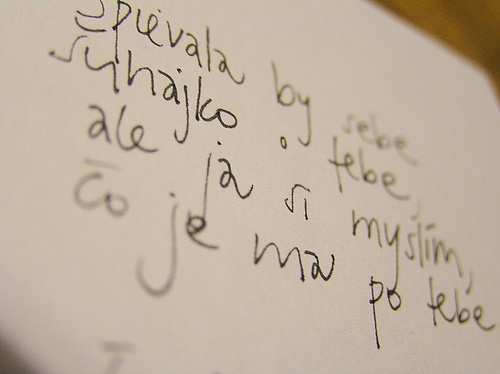 Spievala by sebe
šuhajko o tebe,
ale ja si myslím,
čo je ma po tebe